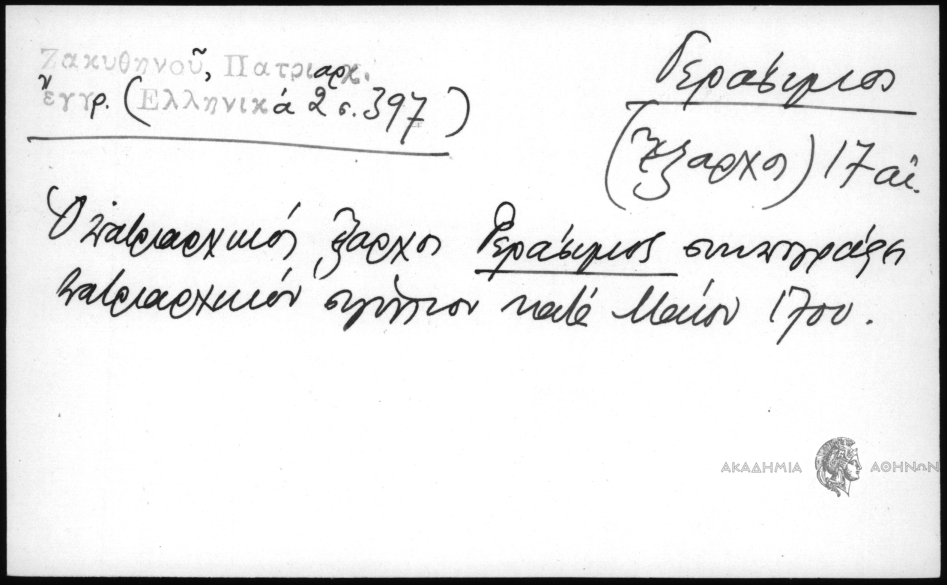 Ζακυθηνοῦ, Πατριαρχ.
ἔγγρ. (Ἑλληνικά 2 σ. 397)
Γεράσιμος
(ἔξαρχος) 17 αἰ.
Ὁ πατριαρχικός ἔξαρχος Γεράσιμος συνυπογράφει
πατριαρχικόν σιγίλλιον κατά Μάιον 1700.
ΑΚΑΔΗΜΙΑ ΑΘΗΝΩΝ